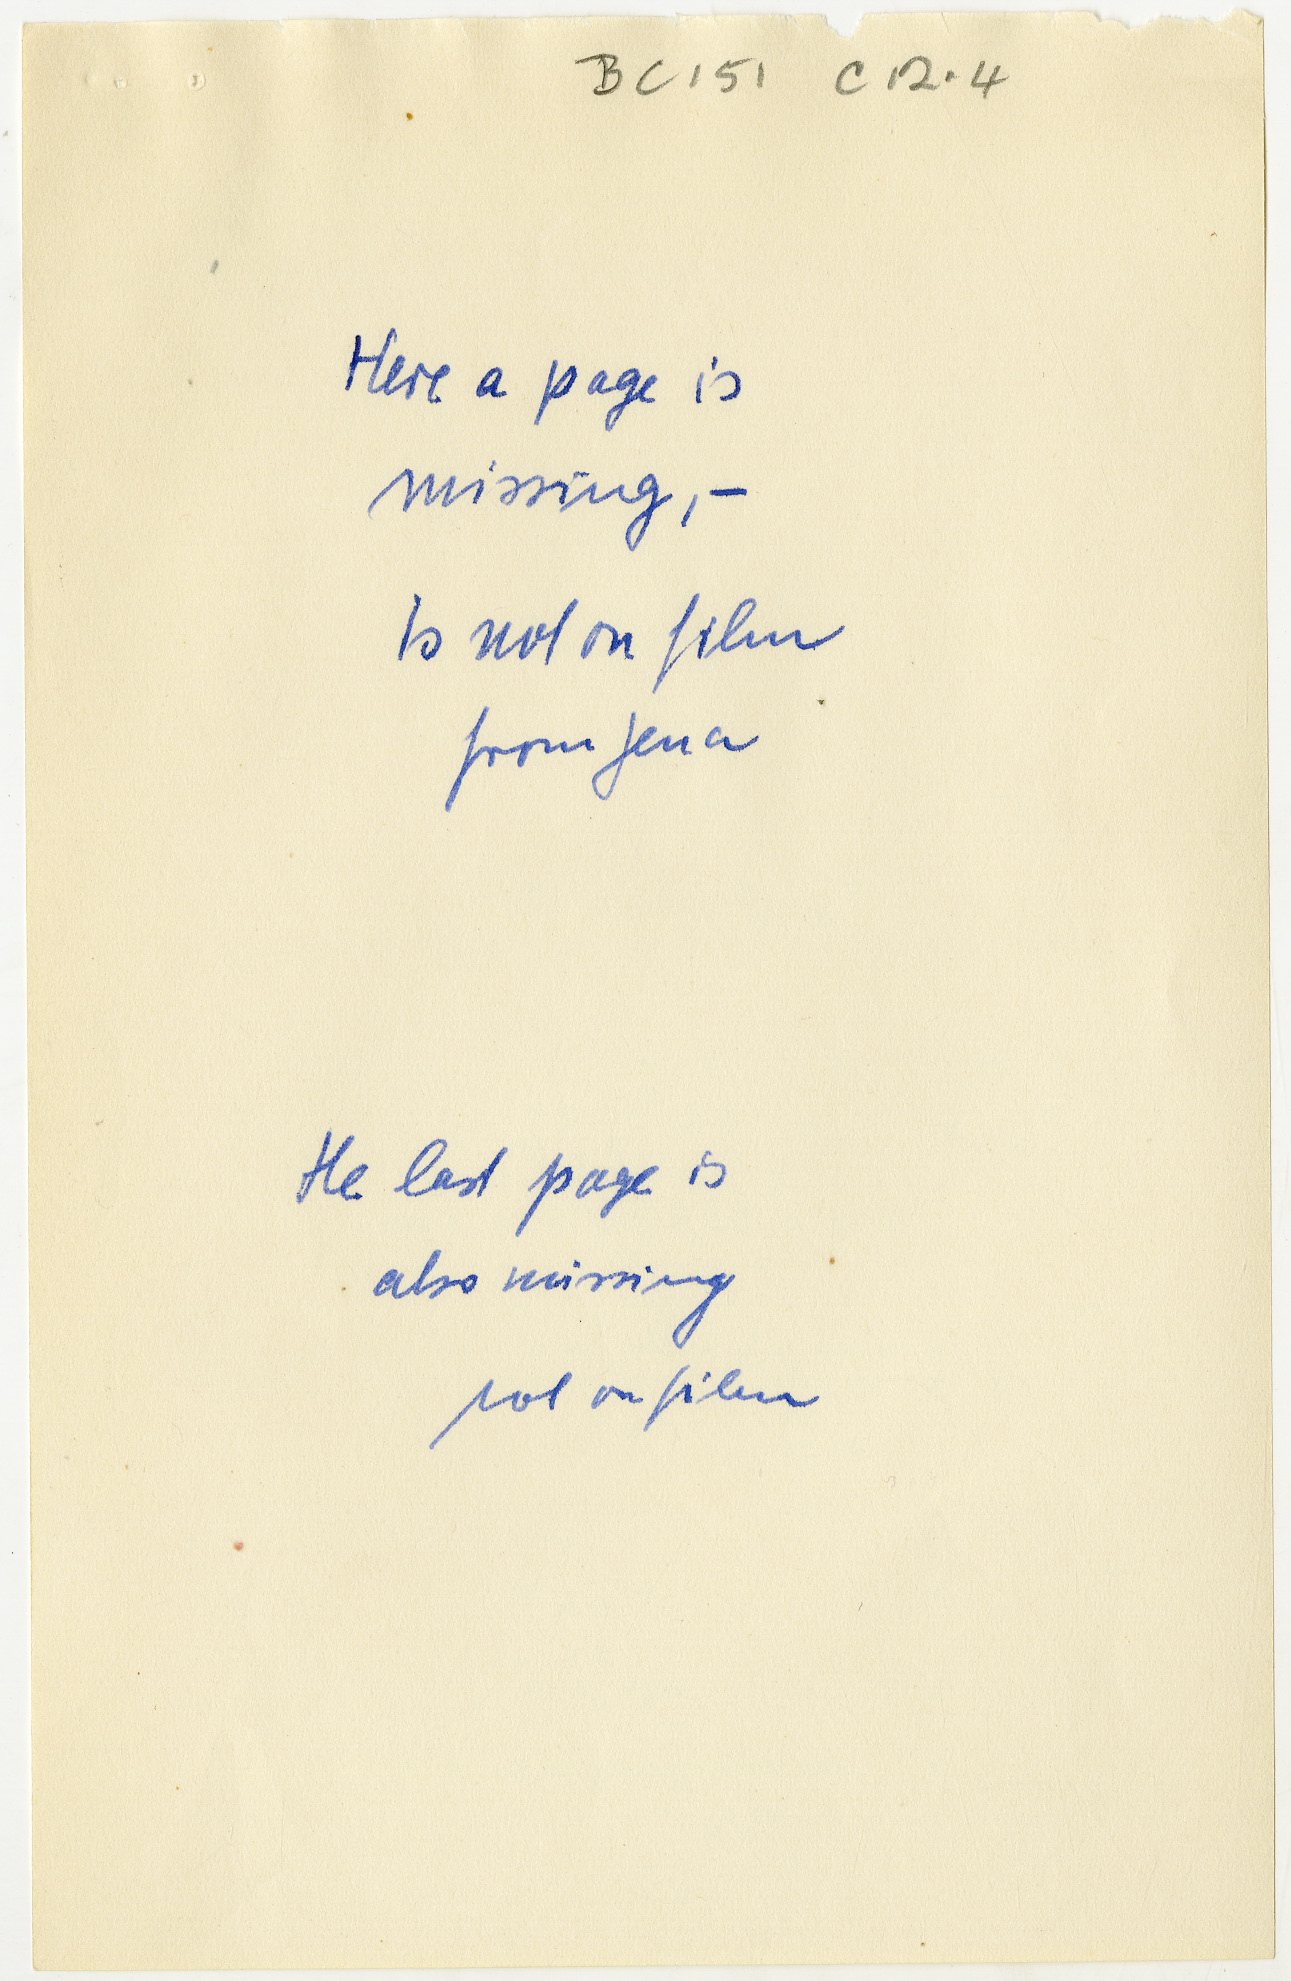 BC151 C12.4
Here a page is
missing,-
is not on film
from Jena
The last page is
also missing
not on film